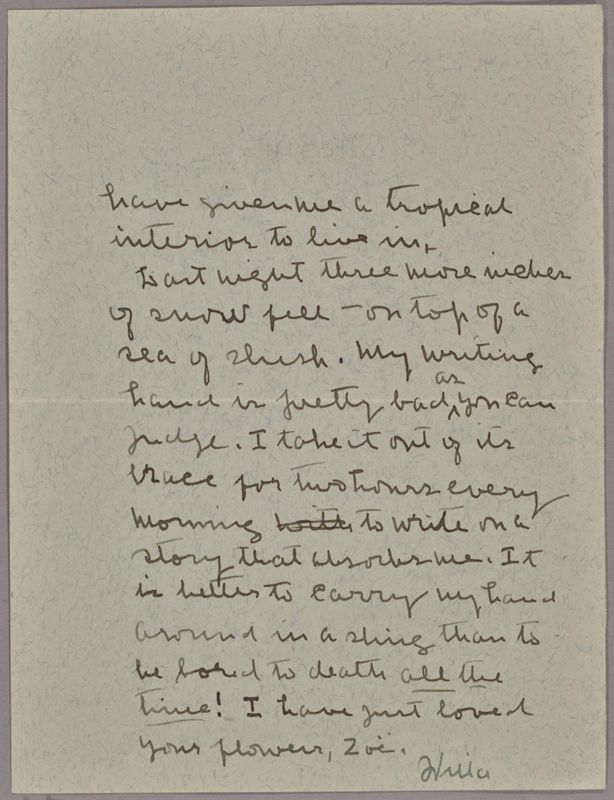 have given me a tropical
interior to live in.
Last night three more inches
of snow fell — on top of a
sea of slush. My writing
hand is pretty bad, as you can
judge. I take it out of its
brace for two hours every
morning with to write on a
story that absorbs me. It
is better to carry my hand
around in a sling than to
be bored to death all the
time! I have just loved
your flowers, Zoë.
Willa